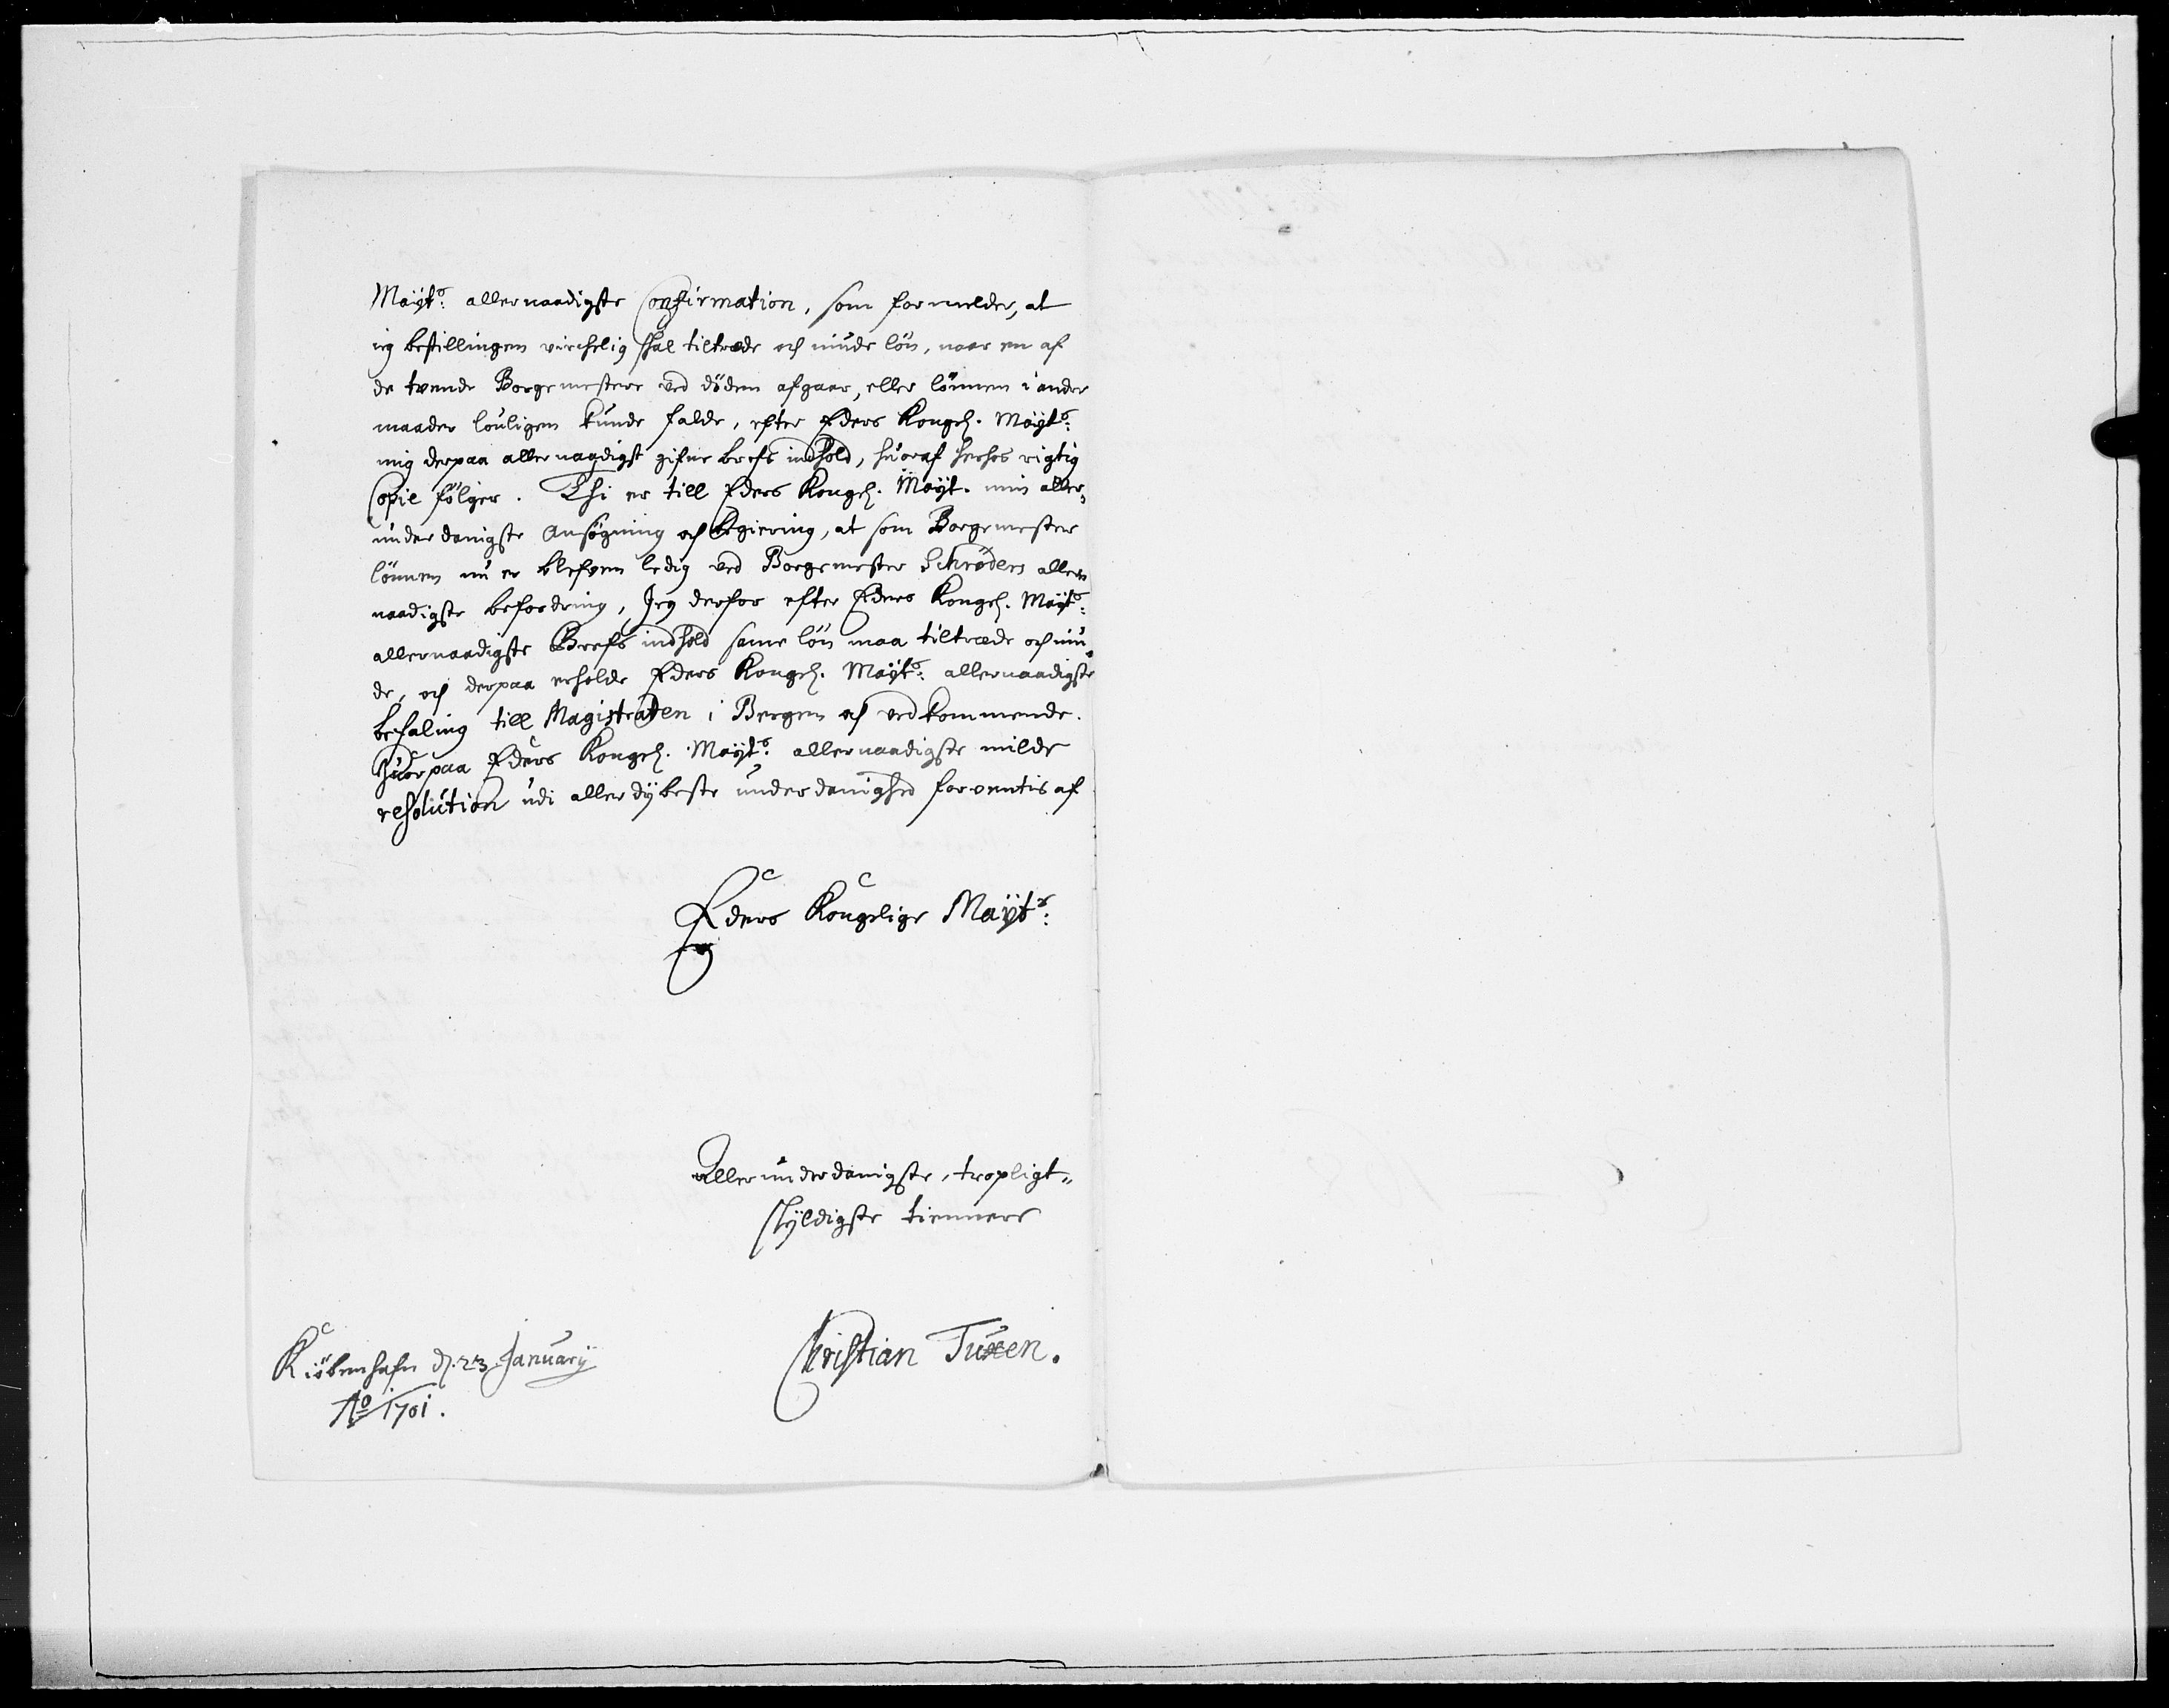 Mayts: allernaadigste Confirmation, som formelder, at
ieg bestillingen virchelig skal tiltræde och niude løn, naar en af
de tvende Borgemestere ved døden afgaar, eller lønnen i ander
maader louligen kunde falde, efter Eders Kongel. Mayts:
mig derpaa allernaadigst gifne brefs indhold, huoraf herhos rigtig
Copie følger. Thi er till Eders Kongel. Mayt. min aller„
underdanigste Ansøgning och begiering, at som Borgemester
lønnen nu er blefven ledig ved Borgemester Schrøders aller„
naadigste befordring, Jeg derfor efter Eders Kongel. Mayts:
allernaadigste Brefs indhold samme løn maa tiltræde och niu„
de, och derpaa erholde Eders Kongel. Mayts: allernaadigste
befaling till Magistraten i Bergen och vedkommende.
Huorpaa Eders Kongel. Mayts: allernaadigste milde
resolution udi allerdybeste underdanighed forventis af
Eders Kongelige Mayts:
Allerunderdanigste, tropligt„
skyldigste tiennere
Christian Tuxen.
Kiøbenhafn d. 23 January
Ao 1701.